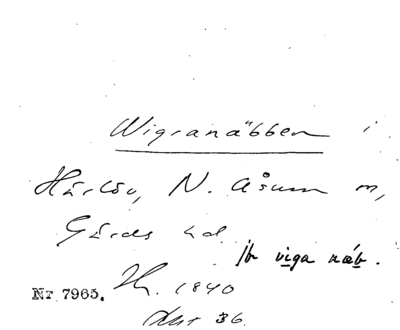 Wigranäbben i
Härlöv, N. Åsum sn,
Gärds hd.
jb viga näb.
Nr 7965. Hr. 1840
akt 36